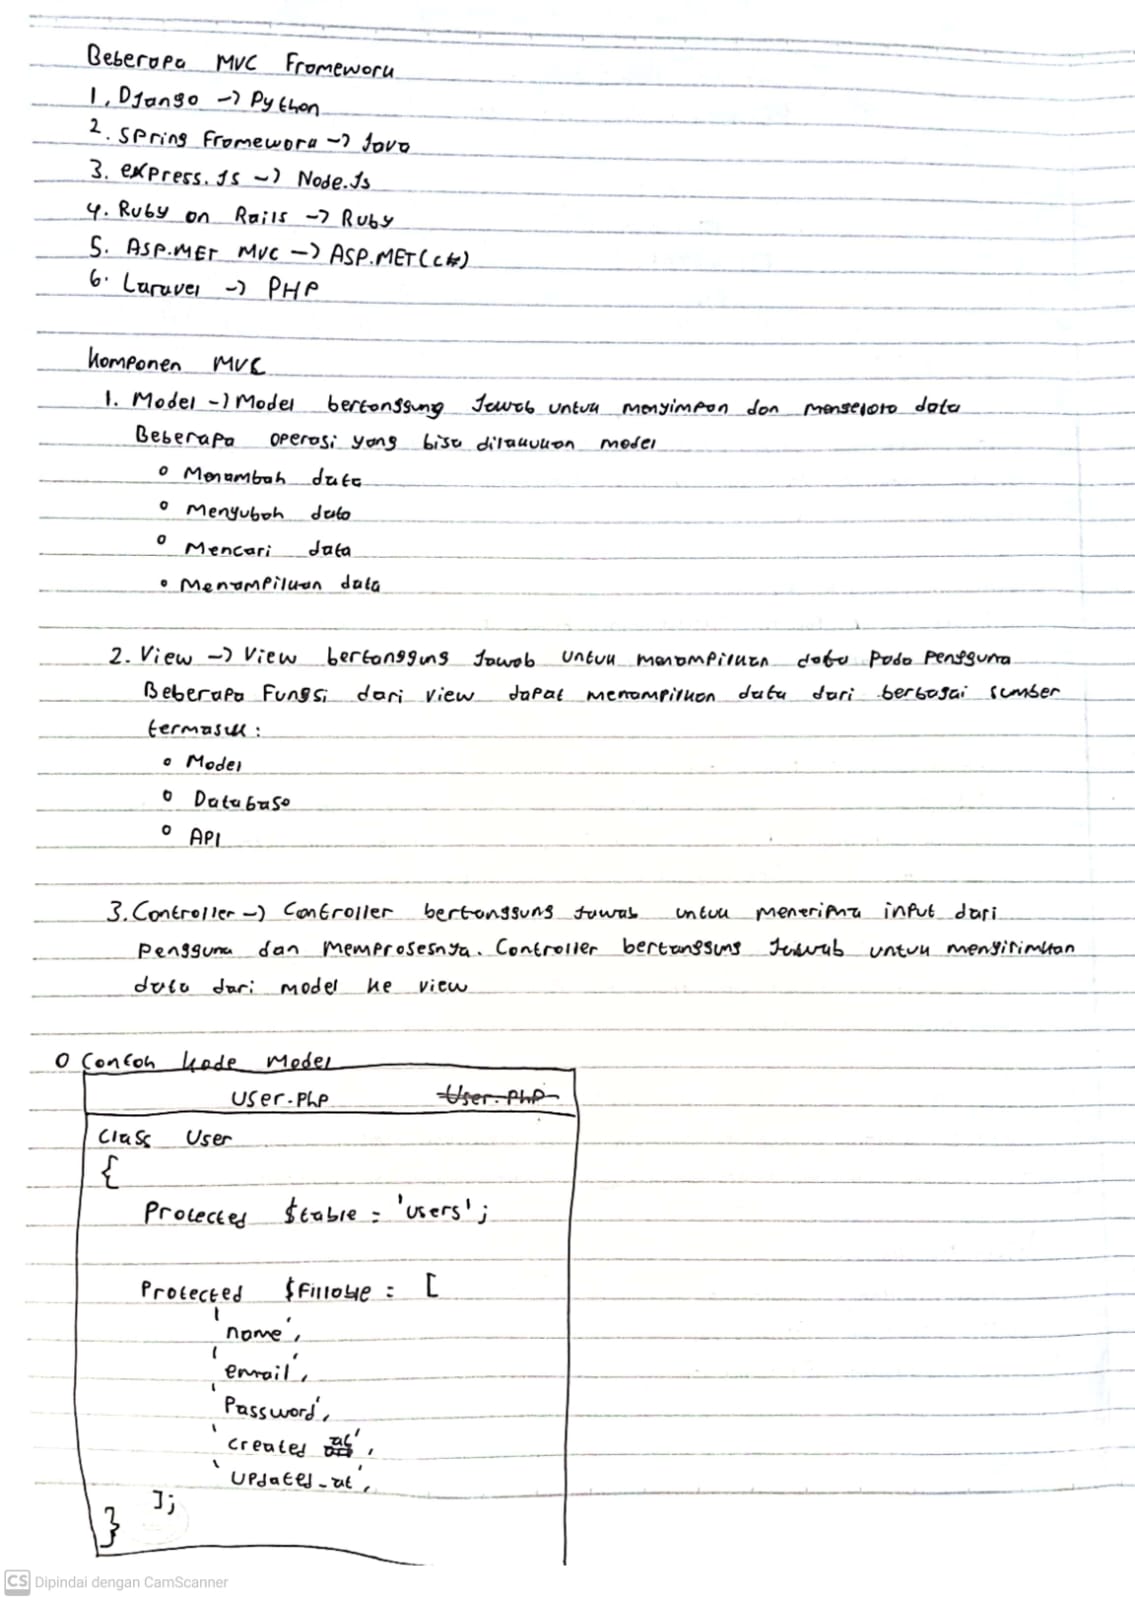 Beberapa MVC Framework
1. Django -> Python
2. Spring Framework -> Java
3. express.Js -> Node.Js
4. Ruby on Rails -> Ruby
5. ASP.MET MVC -> ASP.MET(C#)
6. Laravel -> PHP
Komponen MVC
1. Model -> Model bertanggung Jawab untuk menyimpan dan mengelola data
Beberapa operasi yang bisa dilakukan model
o Menambah data
o Mengubah data
o Mencari data
o Menampilkan data
2. View -> View bertanggung Jawab untuk menampilkan data pada pengguna
Beberapa Fungsi dari view dapat menampilkan data dari berbagai sumber
termasuk :
o Model
o Database
o API
3. Controller -> Controller bertanggung Jawab untuk menerima input dari
pengguna dan memprosesnya. Controller bertanggung Jawab untuk mengirimkan
data dari model ke view
O Contoh kode Model
User.php User.php
Class User
{
Protected $table = 'users';
Protected $fillable = [
'name',
'email',
'Password',
'created at',
'Updated_at',
];
}
CS Dipindai dengan CamScanner